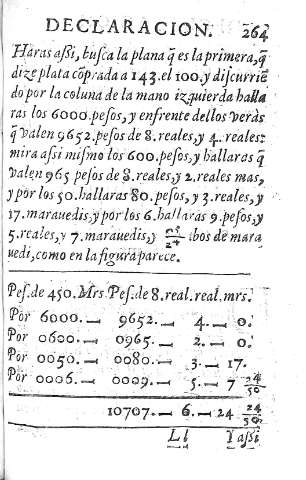 DECLARACION. 264
Haras aſsi, buſca la plana q̃ es la primera, q̃
dize plata cõprada a 143. el 100. y diſcurriẽ
do por la coluna de la mano izquierda halla
ras los 6000. peſos, y enfrente dellos veràs
q̃ valen 9652. peſos de 8. reales, y 4. reales:
mira aſsi miſmo los 600. peſos, y hallaras q̃
valen 965 peſos de 8. reales, y 2. reales mas,
y por los 50. hallaras 80. peſos, y 3. reales, y
17. marauedis, y por los 6. hallaras 9. peſos, y
5. reales, y 7. marauedis, y abos de mara
uedi, como en la figura parece.
Peſ. de 450. Mrs. Peſ. de 8. real. real. mrs.
Por 6000.— 9652.— 4.— 0.
Por 0600.— 0965.— 2.— 0.
Por 0050.— 0080.— 3.— 17.
Por 0006.— 0009.— 5.— 7 24/50
10707.— 6.— 24 24/50
Ll Y aſsi